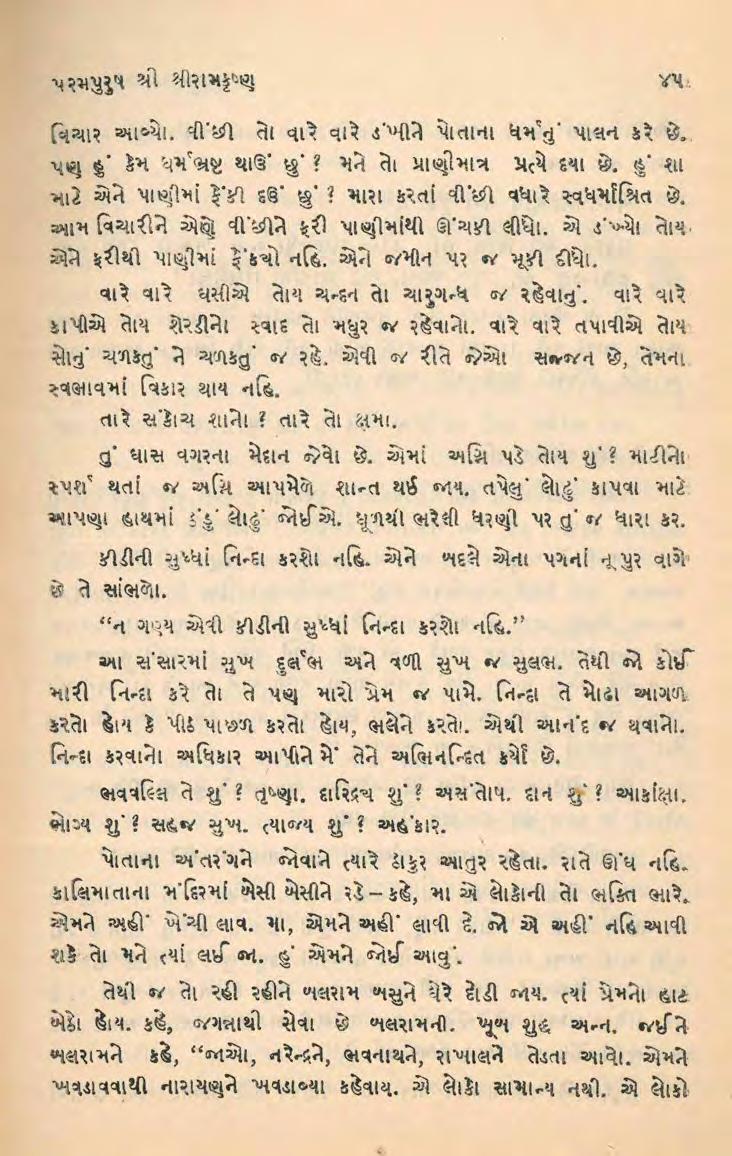 પરમપુરુષ શ્રી શ્રીરામકૃષ્ણ ૪૫
વિચાર આવ્યો. વીંછી તો વારે વારે ડંખીને પોતાના ધર્મનું પાલન કરે છે.
પણ હું કેમ ધર્મભ્રષ્ટ થાઉં છું ? મને તો પ્રાણીમાત્ર પ્રત્યે દયા છે. હું શા
માટે એને પાણીમાં ફેંકી દઉં છું ? મારા કરતાં વીંછી વધારે સ્વધર્માશ્રિત છે.
આમ વિચારીને એણે વીંછીને ફરી પાણીમાંથી ઊંચકી લીધો. એ ડંખ્યો તોય
એને ફરીથી પાણીમાં ફેંકયો નહિ. એને જમીન પર જ મૂકી દીધો.
વારે વારે ઘસીએ તોય ચન્દન તો ચારુગન્ધ જ રહેવાનું. વારે વારે
કાપીએ તોય શેરડીનો સ્વાદ તો મધુર જ રહેવાનો. વારે વારે તપાવીએ તોય
સોનું ચળકતું ને ચળકતું જ રહે. એવી જ રીતે જેઓ સજ્જન છે, તેમના
સ્વભાવમાં વિકાર થાય નહિ.
તારે સંકોચ શાનો ? તારે તો ક્ષમા.
તું ઘાસ વગરના મેદાન જેવો છે. એમાં અગ્નિ પડે તોય શું ? માટીનો
સ્પર્શ થતાં જ અગ્નિ આપમેળે શાન્ત થઈ જાય. તપેલું લોઢું કાપવા માટે
આપણા હાથમાં ઠંડું લોઢું જોઈએ. ધૂળથી ભરેલી ધરણી પર તું જ ધારા કર.
કીડીની સુધ્ધાં નિન્દા કરશો નહિ. એને બદલે એના પગનાં નૂપુર વાગે
છે તે સાંભળો.
“ન ગણ્ય એવી કીડીની સુધ્ધાં નિન્દા કરશો નહિ.”
આ સંસારમાં સુખ દુર્લભ અને વળી સુખ જ સુલભ. તેથી જો કોઈ
મારી નિન્દા કરે તો તે પણ મારો પ્રેમ જ પામે. નિન્દા તે મોઢા આગળ
કરતો હોય કે પીઠ પાછળ કરતો હોય, ભલેને કરતો. એથી આનંદ જ થવાનો.
નિન્દા કરવાનો અધિકાર આપીને મેં તેને અભિનન્દિત કર્યો છે.
ભવવલ્લિ તે શું ? તૃષ્ણા. દારિદ્રય શું ? અસંતોષ. દાન શું ? આકાંક્ષા.
ભોગ્ય શું ? સહજ સુખ. ત્યાજય શું ? અહંકાર.
પોતાના અંતરંગને જોવાને ત્યારે ઠાકુર આતુર રહેતા. રાતે ઊંઘ નહિ.
કાલિમાતાના મંદિરમાં બેસી બેસીને રડે – કહે, મા એ લોકોની તો ભક્તિ ભારે.
એમને અહીં ખેંચી લાવ. મા, એમને અહીં લાવી દે. જો એ અહીં નહિ આવી
શકે તો મને ત્યાં લઈ જા. હું એમને જોઈ આવું.
તેથી જ તો રહી રહીને બલરામ બસુને ઘેરે દોડી જાય. ત્યાં પ્રેમનો હાટ
બેઠો હોય. કહે, જગન્નાથી સેવા છે બલરામની. ખૂબ શુદ્ધ અન્ન. જઈને
બલરામને કહે, “જાઓ, નરેન્દ્રને, ભવનાથને, રાખાલને તેડતા આવો. એમને
ખવડાવવાથી નારાયણને ખવડાવ્યા કહેવાય. એ લોકો સામાન્ય નથી. એ લોકો